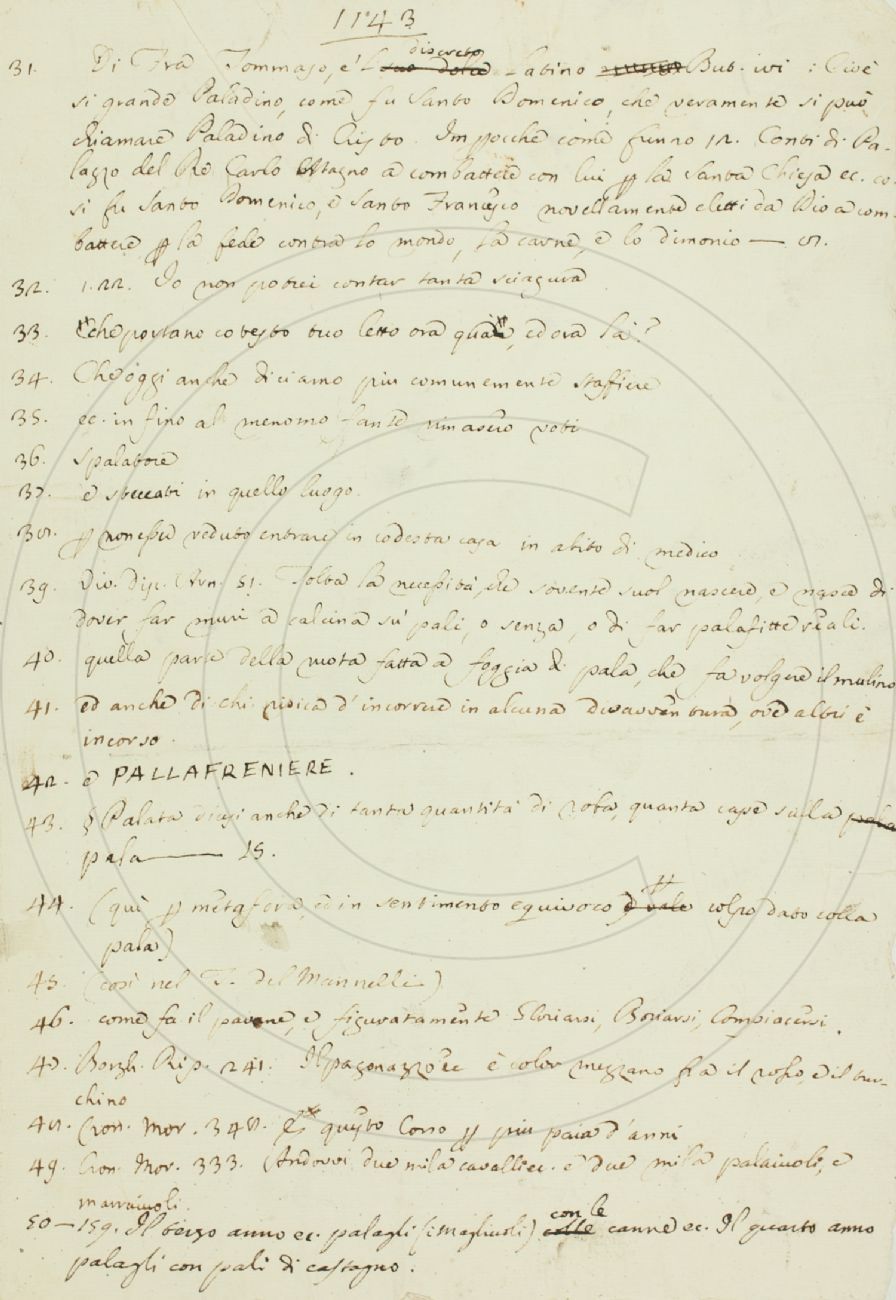 1143
31. Di Fra Tommaso, e 'l discreto latino But. ivi : Cioè
sì grande Paladino, come fu Santo Domenico, che veramente si può
chiamare Paladino di Cristo. Impocchè come funno 12. Conti di Pa-
lazzo del Re Carlo Magno a combattere con lui p la Santa Chiesa ec. co-
si fu Santo Domenico, e Santo Francesco novellamente eletti da Dio a com-
battere p la fede contra lo mondo, la carne, e lo dimonio —
32. 1.22. Io non potrei contar tanta sciagura
33. che portano cotesto tuo letto ora quà, ed ora là?
34. Che oggi anche diciamo più comunemente staffiere
35. ec. in fino al menomo fante rimasero voti
36. spalatore
37. e steccati in quello luogo.
38. p non esser veduto entrare in codesta casa in abito di medico
39. Viv. Disc. Arn. 51. Tolta la necessità, che sovente suol nascere, e nasce di
dover far muri a calcina su' pali, o senza, o di far palafitte reali.
40. quella parte della ruota fatta a foggia di pala, che fa volgere il mulino
41. ed anche di chi risica d'incorrere in alcuna disavventura, ove altri è
incorso.
42. e PALLAFRENIERE.
43. § Palata dicesi anche di tanta quantità di roba, quanta cape sulla
pala — 15.
44. (quì p metafora, ed in sentimento equivoco p colpo dato colla
pala)
45. (così nel T. del Mannelli)
46. come fa il pavone, e figuratamente Gloriarsi, Boriarsi, Compiacersi.
47. Borgh. Rip. 241. Il pagonazzo ec è color mezzano fra il rosso, e il tur-
chino
48. Cron. Mor. 348. E questo corso p più paia d'anni
49. Cron. Mor. 333. Andovvi due mila cavalli ec. e due mila palaiuoli, e
marraiuoli.
50 — 159. Il terzo anno ec. palagli (i magliuoli) con le canne ec. Il quarto anno
palagli con pali di castagno.